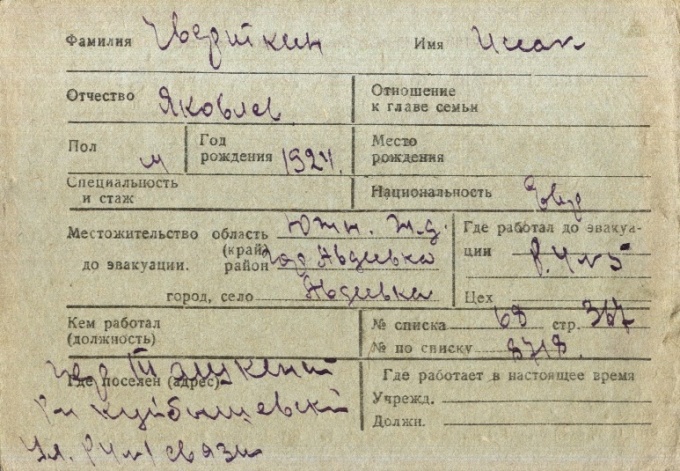 Фамилия Чвериткин Имя Исаак
Отчество Яковлев
Отношение
к главе семьи
Пол м
Год
рождения 1924.
Место
рождения
Специальность
и стаж
Национальность Евр
Местожительство область Южн. ж.д.
(край)
до эвакуации. район Авдеевка
город, село Авдеевка
Где работал до эвакуа-
ции
Цех
Кем работал
(должность)
№ списка 68 стр. 367
№ по списку 8718.
Где поселен (адрес)
гор Ташкент
Р-н Куйбышевский
Ул. связи
Где работает в настоящее время
Учрежд.
Должн.